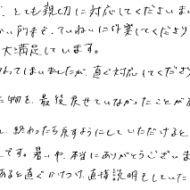 、とても親切に対応してくださいま
い所まで、ていねいに作業してくださり
大満足しています。
わてしまいましたが、直ぐ対応してくださり
た物を、最後戻せていなかったことがあ
、終わったら戻すようにしていただけると
です。暑い中、本当にありがとうございま
あると直ぐかけつけ、直接説明をしていた